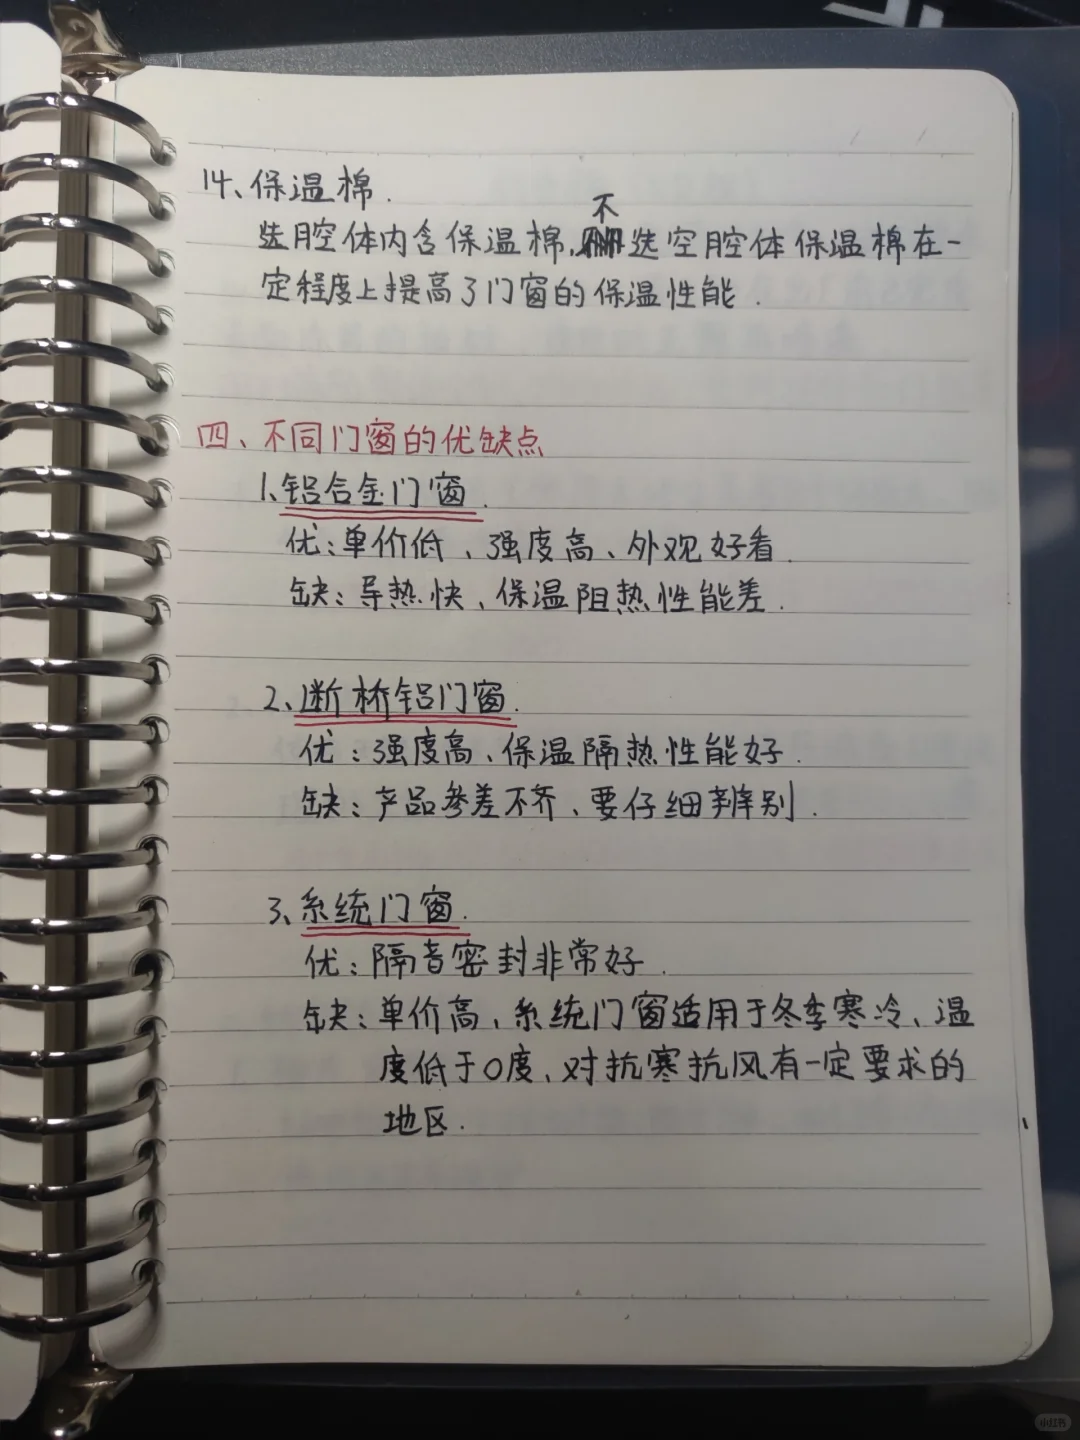 14、保温棉.
选腔体内含保温棉,不选空腔体保温棉在一
定程度上提高了门窗的保温性能.
四、不同门窗的优缺点
1、铝合金门窗.
优:单价低、强度高、外观好看.
缺:导热快、保温阻热性能差.
2、断桥铝门窗.
优:强度高、保温隔热性能好.
缺:产品参差不齐、要仔细辨别.
3、系统门窗.
优:隔音密封非常好.
缺:单价高、系统门窗适用于冬季寒冷、温
度低于0度、对抗寒抗风有一定要求的
地区.
小红书